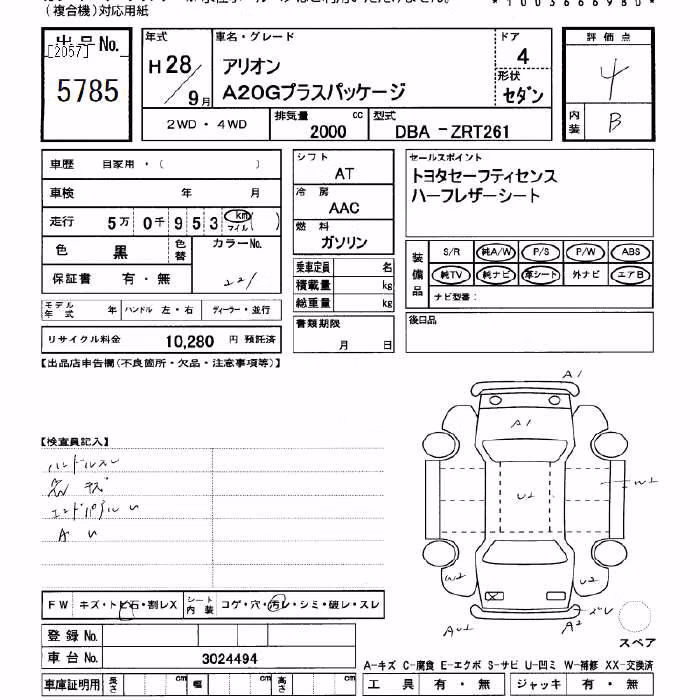 (複合機)対応用紙
*1003666980*
出品No.
[2057]
5785
年式
H28/9月
車名・グレード
アリオン
A20Gプラスパッケージ
ドア
4
形状
セダン
2WD・4WD
排気量
2000 cc
型式
DBA-ZRT261
評価点
4
内装
B
車歴 自家用・( )
車検 年 月
走行 5万0千953 km マイル( )
色 黒
色替
カラーNo.
221
保証書 有・無
モデル年式 年
ハンドル 左・右
ディーラー・並行
リサイクル料金 10,280 円 預託済
シフト
AT
冷房
AAC
燃料
ガソリン
乗車定員 名
積載量 kg
総重量 kg
書類期限
月 日
セールスポイント
トヨタセーフティセンス
ハーフレザーシート
装備品
S/R 純A/W P/S P/W ABS
純TV 純ナビ 革シート 外ナビ エアB
ナビ型番:
後日品
【出品店申告欄(不良箇所・欠品・注意事項等)】
【検査員記入】
ハンドルスレ
A1
A1
U2
W2
W2
U2
ズレ
A2
スペア
FW キズ・トビ石・割レX
シート内装 コゲ・穴・汚レ・シミ・破レ・スレ
登録No.
車台No. 3024494
車庫証明用 長さ cm 幅 cm 高さ cm
A-キズ C-腐食 E-エクボ S-サビ U-凹ミ W-補修 XX-交換済
工具 有・無 ジャッキ 有・無